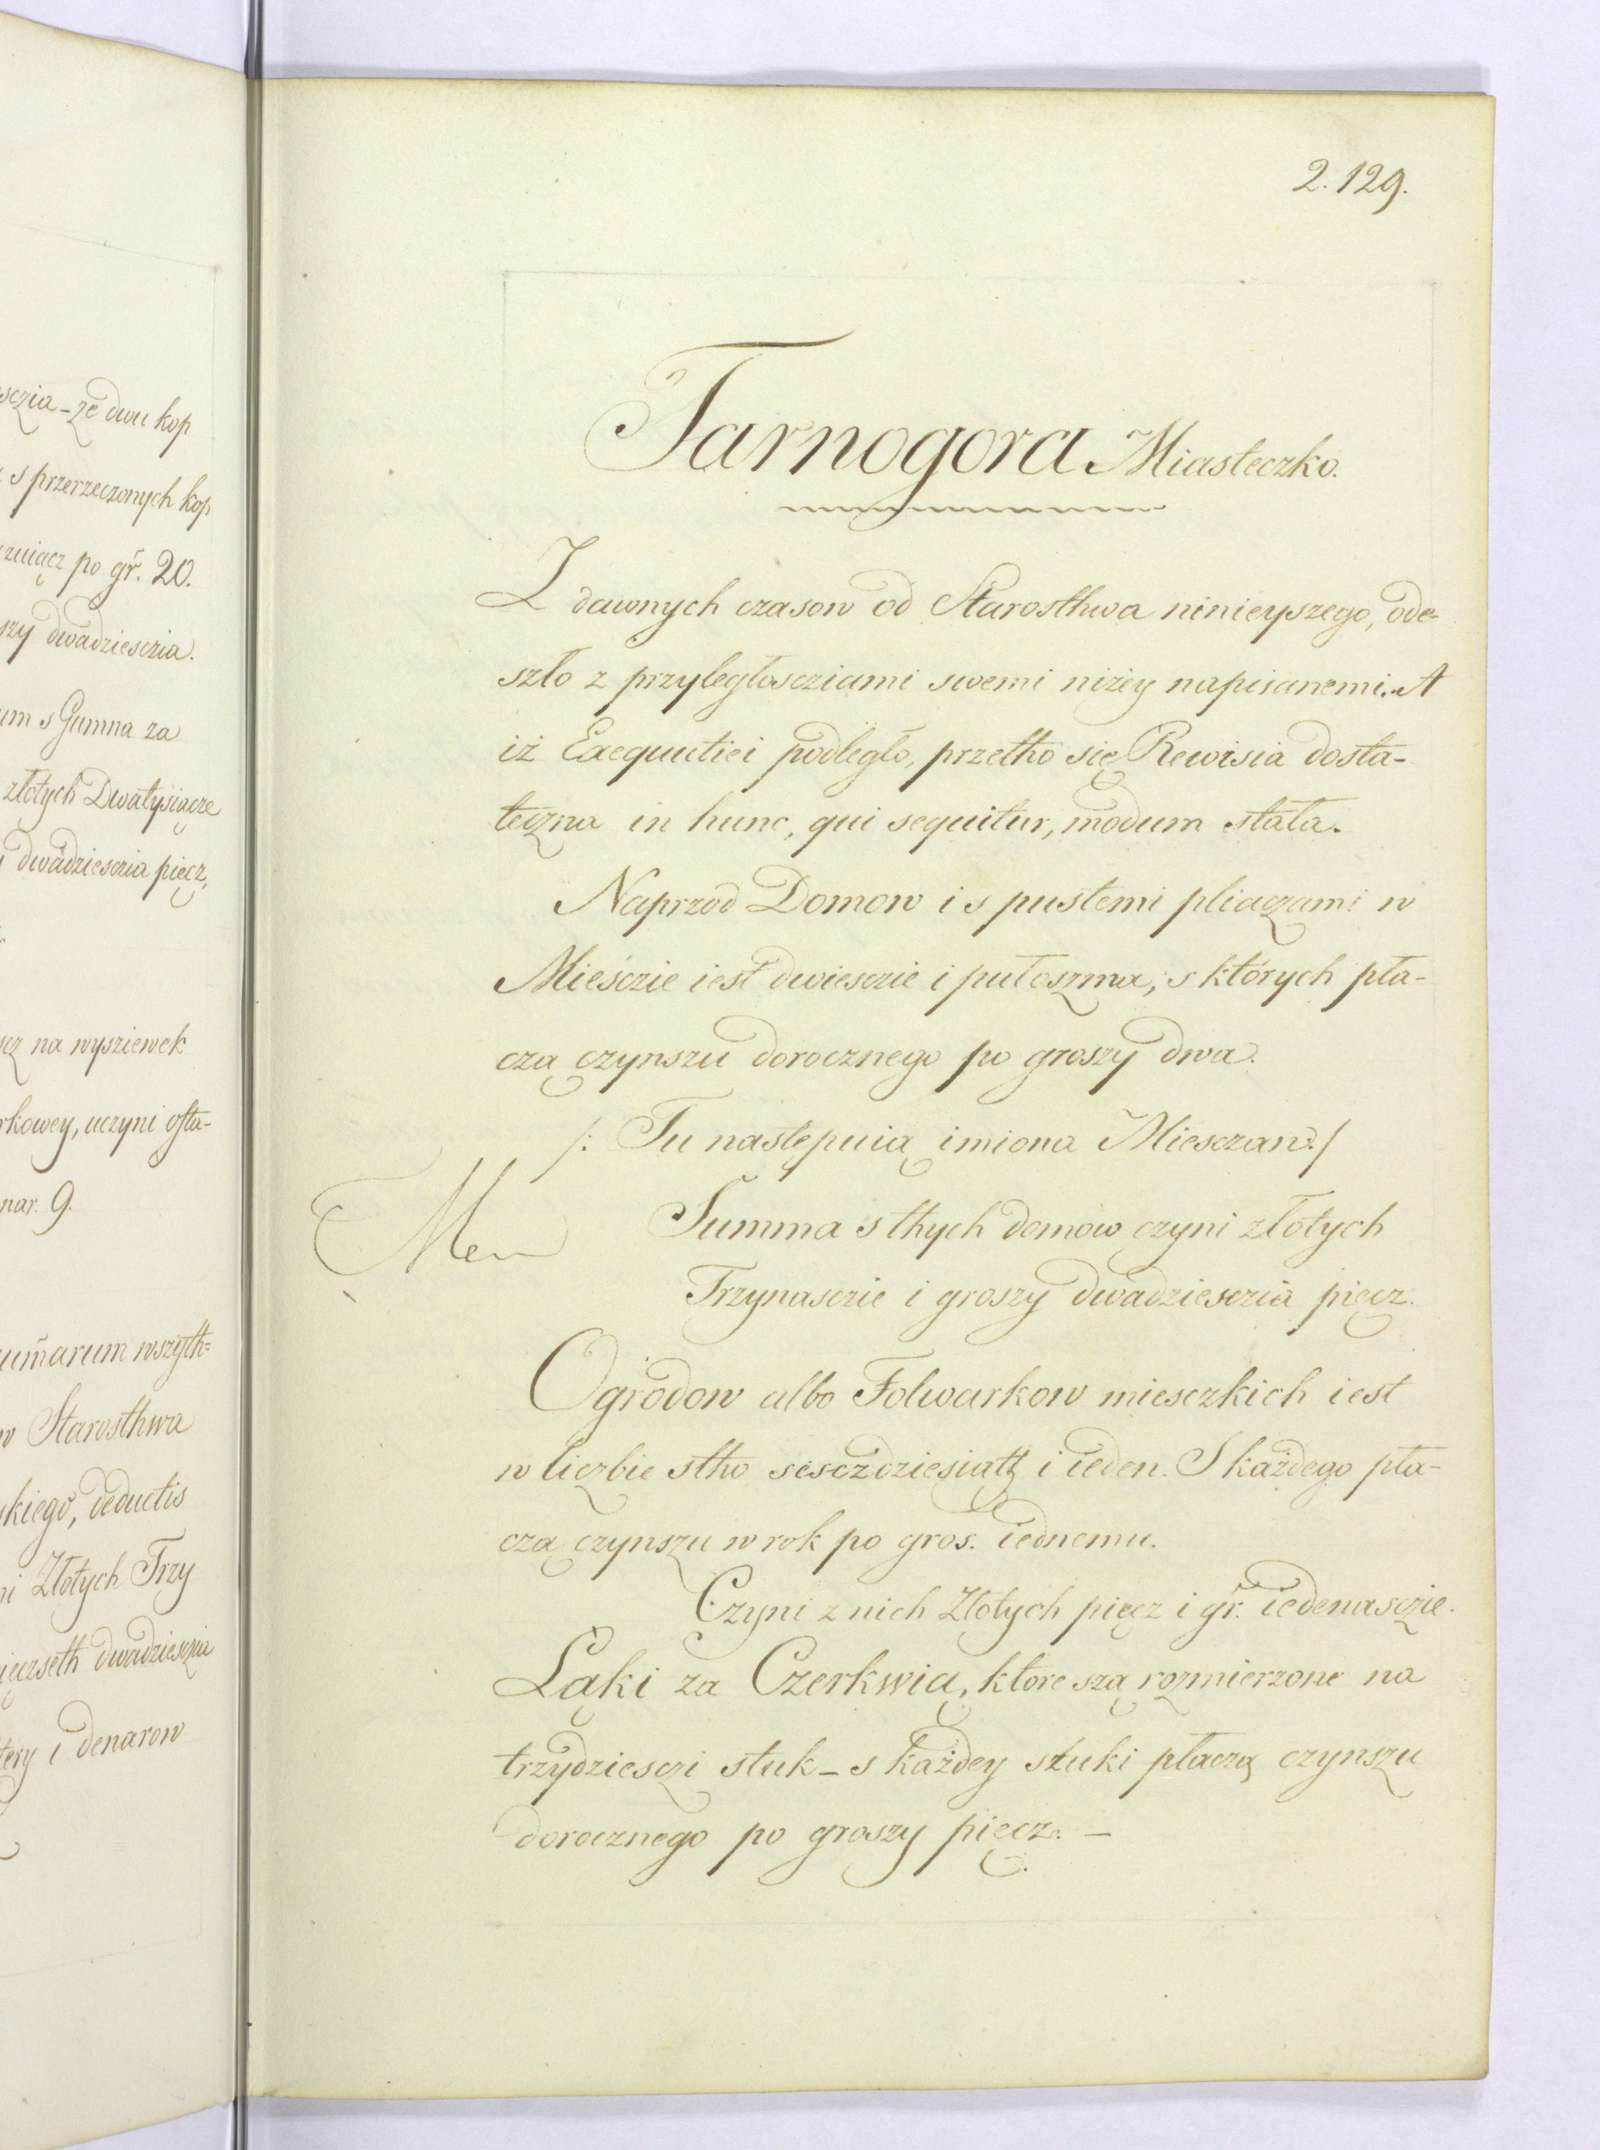 sczia - ze dwu kop
s przerzeczonych kop
po gř. 20.
dwadziesczia.
s Gumna za
złotych Dwatysiącze
dwadziesczia pięcz,
na wysziewek
rkowey, uczyni osta-
nar. 9.
wszyth=
Starosthwa
skiego, deductis
Złotych Trzy
dwadziesczia
i denarow
2. 129.
Tarnogora Miasteczko.
Z dawnych czasow od Starosthwa ninieyszego, ode-
szło z przyległosciami swemi niżey napisanemi. A
iż Exequutiei podległo, przetho się Rewisia dosta-
teczna in hunc, qui sequitur, modum stała.
Naprzod Domow i s pustemi pliaczami w
Mieśczie iest dwiesczie i pułoszma, s których pła-
czą czynszu dorocznego po groszy dwa.
/: Tu następuią imiona Miesczan :/
Summa s thych domow czyni złotych
Trzynasczie i groszy dwadziesczia pięcz.
Ogrodow albo Folwarkow miesczkich iest
w liczbie stho sesczdziesiąth i ieden. S każdego pła-
czą czynszu w rok po gros. iednemu.
Czyni z nich Złotych pięcz i gř. iedenasczie.
Ląki za Czerkwią, ktore szą rozmierzone na
trzydziesczi stuk - s każdey stuki płaczą czynszu
dorocznego po groszy pięcz. -